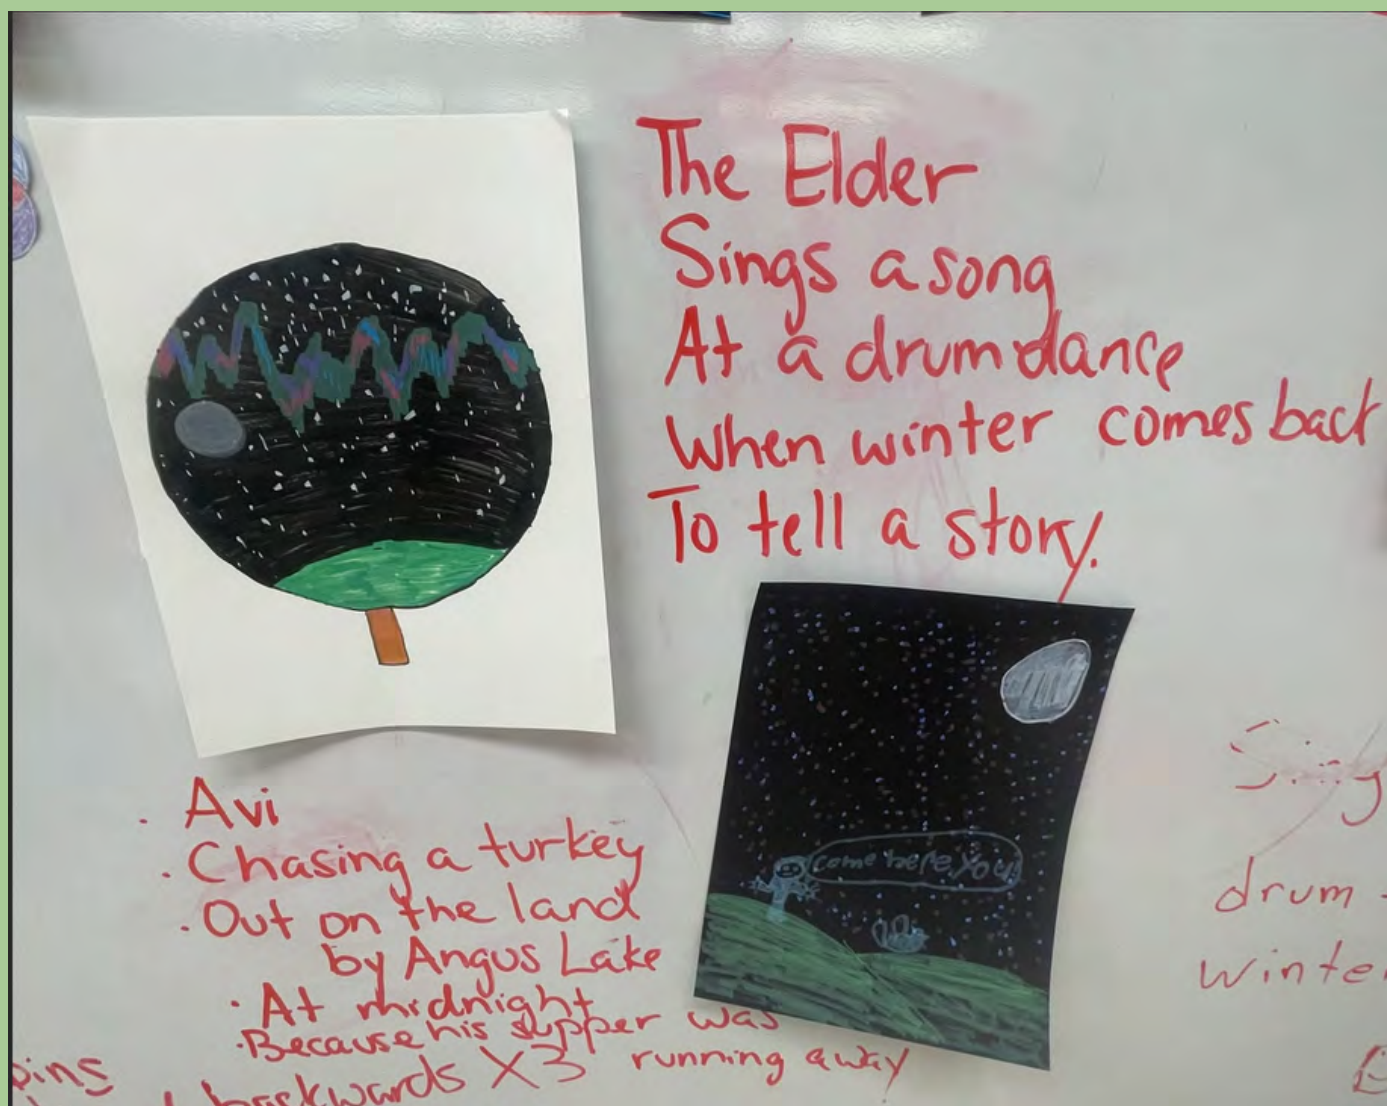 The Elder
Sings a song
At a drum dance
When winter comes back
To tell a story.
come here, you!
· Avi
· Chasing a turkey
· Out on the land
by Angus Lake
· At midnight
· Because his supper was
running away
backwards X3
drum
winter